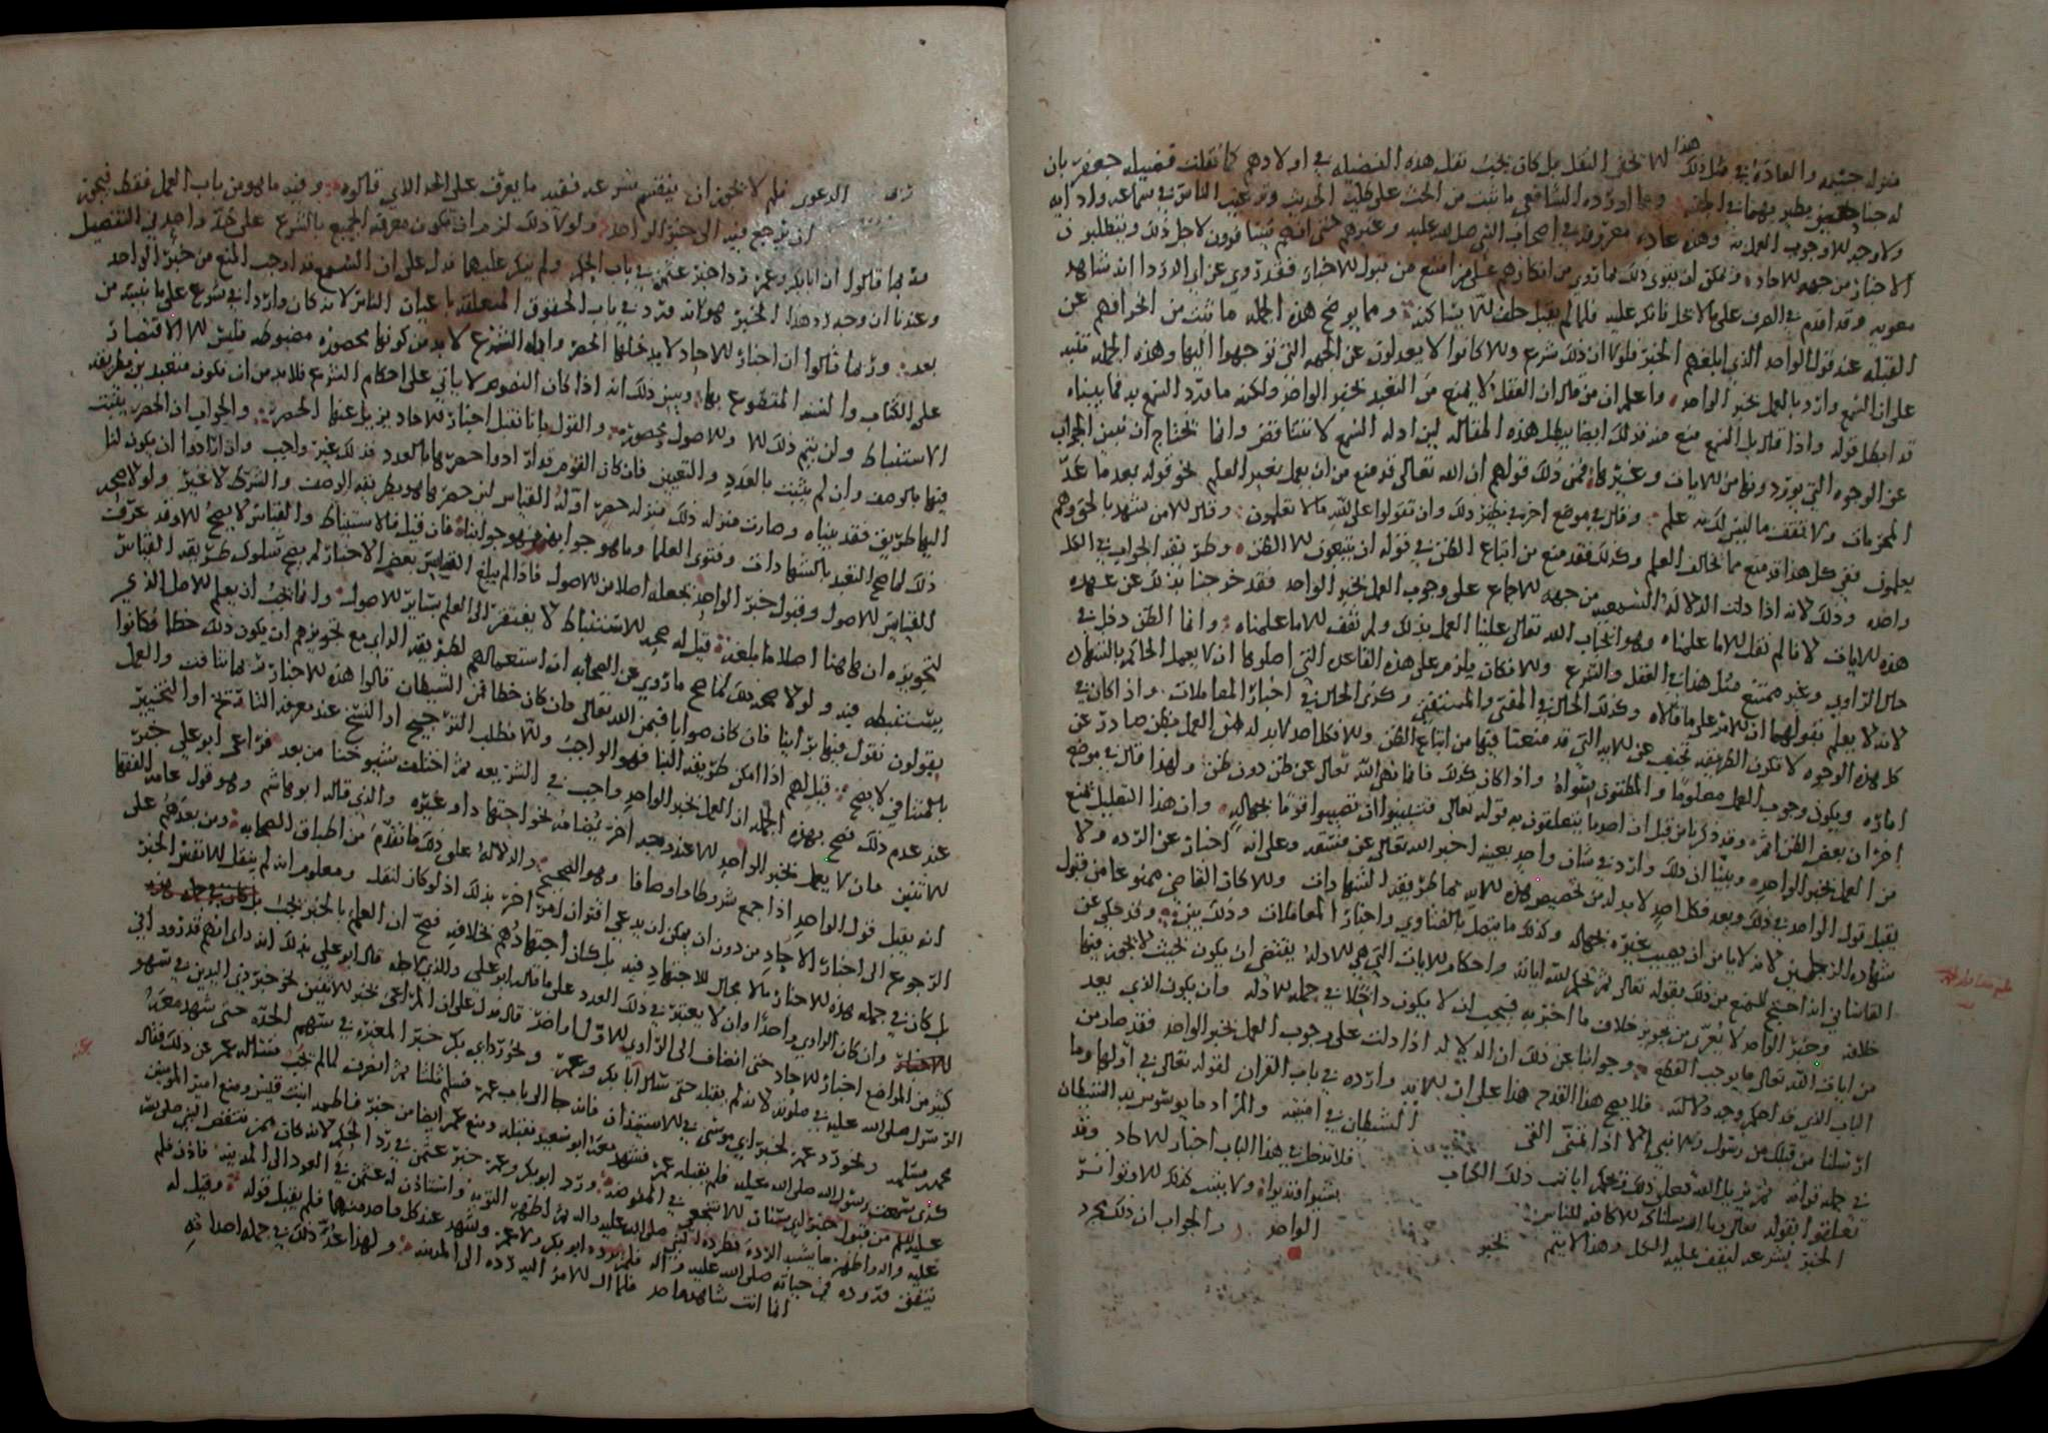 منوله حبسه والعادة في مثل ذلك هذا لا تخفى النقل بل كان يجب نقل هذه الفضيله في اولادهم كما نقلت فضيله جعفر بان
له جناحين يطير بهما في الجنه ومما اورده الشافعي ما ثبت من الحث على طلب الحديث وترغيب الناس في سماعه واداه
ولا وجه الا وجوب العمل به وهذه عاده معروفه في اصحاب النبي صلى الله عليه وغيرهم حتى انهم كانوا يسافرون لاجل ذلك ويتطلبون
الاخبار من جهه الاحاد ويمكن ان يقوى ذلك بما روي من انكارهم على من امتنع من قبول الاخبار فقد روي عن ابي الدردا انه شاهد
معويه وقد اقدم في الصرف على ما لا يحل فانكر عليه فلما لم يقبل حلف لا يساكنه ومما يوضح هذه الجمله ما ثبت من انحرافهم عن
القبله عند قول الواحد الذي ابلغهم الخبر فلولا ان ذلك شرع والا كانوا لا يعدلون عن الجهه التي توجهوا اليها وهذه الجمله تنبه
على ان السمع وارد بالعمل بخبر الواحد واعلم ان من قال ان العقل لا يمنع من التعبد بخبر الواحد ولكنه ما ورد السمع به فما بيناه
قد ابطل قوله واذا قال بل السمع منع منه فذلك ايضا يبطل هذه المقاله لان ادله السمع لا تتناقض وانما نحتاج ان نبين الجواب
عن الوجوه التي يوردونها من الايات وغيرها فمن ذلك قولهم ان الله تعالى قد منع من ان يعمل بغير العلم نحو قوله بعد ما عد
المحرمات ولا تقف ما ليس لك به علم وقال في موضع اخر في نظير ذلك وان تقولوا على الله ما لا تعلمون وقال الا من شهد بالحق وهم
يعلمون ففي كل هذا قد منع مما يخالف العلم وكذلك فقد منع من اتباع الظن في قوله ان يتبعون الا الظن وطريقه الجواب في الكل
واحده وذلك لانه اذا دلت الدلاله السمعيه من جهه الاجماع على وجوب العمل بخبر الواحد فقد خرجنا بذلك عن عهده
هذه الايات لانا لم نقل الا ما علمناه وهو ايجاب الله تعالى علينا العمل بذلك ولم نقف الا ما علمناه وانما الظن دخل في
حال الراوي وغير ممتنع مثل هذا في العقل والشرع والا فكان يلزم على هذه القاعده التي اصلوها ان لا يعمل الحاكم بالشهاده
لانه لا يعلم بقولهما ان الامر على ما قالاه وكذلك الحال في المفتي والمستفتي وكذى الحال في اخبار المعاملات واذا كان في
كل هذه الوجوه لا تكون الطريقه تخرج عن الايه التي قد منعتنا فيها من اتباع الظن والا فكل احد لا بد له من العمل بظن صادر عن
اماره ويكون وجوب العمل معلوما والمظنون سواه واذا كان كذلك فانما نهى الله تعالى عن ظن دون ظن ولهذا قال في موضع
اخر ان بعض الظن اثم وقد ذكرنا من قبل ان اخص ما يتعلقون به قوله تعالى فتبينوا ان تصيبوا قوما بجهاله وان هذا التعليل يمنع
من العمل بخبر الواحد وبينا ان ذلك وارد في شان واحد بعينه اخبر الله تعالى عن فسقه وعلى انه اخبار عن الرده ولا
يقبل قول الواحد في ذلك وبعد فكل احد لا بد له من تخصيص هذه الايه بما طريقه الشهادات والا كان القاضي ممنوعا من قبول
شهاده الرجلين لانه لا يامن ان يصيب غيره بجهاله وكذلك ما يتصل بالفتاوي واخبار المعاملات وذلك بين وقد حكي عن
القاشاني انه احتج للمنع من ذلك بقوله تعالى ثم يحكم الله اياته واحكام الايات التي هي الادله يقتضي ان يكون بحيث لا يجوز فيها
خلافه وخبر الواحد لا يعرى من تجويز خلاف ما اخبر به فيجب ان لا يكون داخلا في جمله الادله وان يكون الذي يعد
من ايات الله تعالى ما يوجب القطع وجوابنا عن ذلك ان الدلاله اذا دلت على وجوب العمل بخبر الواحد فقد صار من
الباب الذي قد احكم وجه دلالته فلا يصح هذا القدح هذا على ان الايه وارده في باب القران لقوله تعالى في اولها وما
ارسلنا من قبلك من رسول ولا نبي الا اذا تمنى القى الشيطان في امنيته والمراد ما يوسوس به الشيطان
في جمله قراته ثم يزيل الله تعالى ذلك وتحكم اياته ذلك الكتاب فلا تدخل في هذا الباب اخبار الاحاد وقد
تعلقوا بقوله تعالى وما ارسلناك الا كافه للناس بشيرا ونذيرا ولا يثبت كذلك الا وتواتر
الخبر بشرعه ليقف عليه الكل وهذا لا يتم بخبر الواحد والجواب ان ذلك مجرد
الدعوى فلم لا يجوز ان ينقسم شرعه ففيه ما يعرف على الحد الذي قالوه وفيه ما هو من باب العمل فقط فيجوز
ان يرجع فيه الى خبر الواحد ولولا ذلك لزم ان تكون معرفه الجميع بالشرع على حد واحد في التفصيل
وربما قالوا ان ابا بكر وعمر ردا خبر عثمن في باب الحكم ولم ينكر عليهما فدل على ان السمع قد اوجب المنع من خبر الواحد
وعندنا ان وجه رد هذا الخبر هو انه ورد في باب الحقوق المتعلقه باعيان الناس لانه كان واردا في شرع على ما نبينه من
بعد وربما قالوا ان اخبار الاحاد لا يدخلها الحصر وادله الشرع لا بد من كونها محصوره مضبوطه فليس الا الاقتصار
على الكتاب والسنه المقطوع بها ويبين ذلك انه اذا كان النصوص لا ياتي على احكام الشرع فلا بد من ان نكون متعبدين بطريقه
الاستنباط ولن يتم ذلك الا والاصول محصوره والقول بانا نقبل اخبار الاحاد يزيل عنها الحصر والجواب ان الحصر يثبت
فيها بالوصف وان لم يثبت بالعدد والتعيين فان كان القوم قد ارادوا حصرها بالعدد فذلك غير واجب وان ارادوا ان يكون لنا
اليها طريق فقد بيناه وصارت منزله ذلك منزله حصر ادله القياس لان حصرها هو بطريقه الوصف والشرط لا غير ولولا صحه
ذلك لما صح التعبد بالشهادات وفتوى العلما وما هو جوابهم فهو جوابنا فان قيل فالاستنباط والقياس لا يصح الا وقد عرفت
القياس الاصول وقبول خبر الواحد يجعله اصلا من الاصول فاذا لم يبلغ القياس بعض الاخبار لم يصح سلوك طريقه القياس
لتجويزه ان هاهنا اصلا ما بلغه قيل له صحه الاستنباط لا يفتقر الى العلم بسائر الاصول وانما يجب ان يعلم الاصل الذي
يستنبطه فيه ولولا صحه ذلك لما صح ما روي عن الصحابه ان استعمالهم لطريقه الراي مع تجويزهم ان يكون ذلك خطا فكانوا
يقولون نقول فيها براينا فان كان صوابا فمن الله تعالى وان كان خطا فمن الشيطان قالوا هذه الاخبار ربما تنافت والعمل
بالمتنافي لا يصح قيل لهم اذا امكن طريقه البنا فهو الواجب والا فطلب الترجيح او النسخ عند معرفه التاريخ او التخيير
عند عدم ذلك فصح بهذه الجمله ان العمل بخبر الواحد واجب في الشريعه ثم اختلف شيوخنا من بعد فراعى ابو علي خبر
الاثنين وان لا يعمل بخبر الواحد الا عند وجه اخر يضاف نحو اجتهاد او غيره والذي قاله ابو هاشم وهو قول عامه الفقها
انه يقبل قول الواحد اذا جمع شروطا واوصافا وهو الصحيح والدلاله على ذلك ما تقدم من اطباق الصحابه ومن بعدهم على
الرجوع الى اخبار الاحاد من دون ان يمكن ان يدعى اقتران امر اخر بذلك اذ لو كان لنقل ومعلوم انه لم ينقل الا نفس الخبر
بل كان في جمله هذه الاخبار ما لا مجال للاجتهاد فيه بل كان اجتهادهم بخلافه فصح ان العمل بالخبر يجب
وان كان الراوي واحدا وان لا يعتبر في ذلك العدد على ما قاله ابو علي والذي لاجله قال ابو علي بذلك انه راى انهم قد ردوا في
كثير من المواضع اخبار الاحاد حتى انضاف الى الراوي الاول اخر قال فدل على ان المراعى بخبر الاثنين نحو خبر ذي اليدين في سهو
الرسول صلى الله عليه في صلوته لانه لم يقبله حتى سال ابا بكر وعمر ونحو رد ابي بكر خبر المغيره في سهم الجده حتى شهد معه
محمد بن مسلمه ونحو رد عمر لخبر ابي موسى في الاستيذان فانه جا الى باب عمر فسلم ثلثا ثم انصرف لما لم يجب فساله عمر عن ذلك فقال
كذى سمعت رسول الله صلى الله عليه فلم يقبله عمر فشهد معه ابو سعيد فقبله ومنع عمر ايضا من خبر فاطمه ابنت قيس ومنع امير المومنين
عليلم من قبول خبر ابي سنان الاشجعي في المفوضه ورد ابو بكر وعمر خبر عثمن في رد الحكم لانه كان ممن تنقص النبي صلى الله
عليه واله واظهر ما يشبه الرده فطرده النبي صلى الله عليه واله ثم اظهر التوبه واستاذن له عثمن في العود الى المدينه فاذن فلم
يتفق وروده في حياته صلى الله عليه واله فلم يرده ابو بكر ولا عمر وشهد عند كل واحد منهما فلم يقبل قوله وقيل له
انما انت شاهد واحد فلما ال الامر اليه رده الى المدينه ولهذا عد ذلك في جمله احداثه